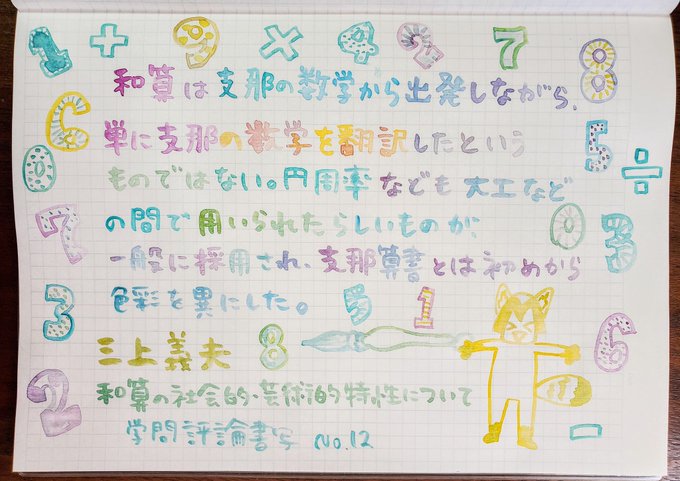 1 + 9 × 4 2 7 8
和算は支那の数学から出発しながら、
6
単に支那の数学を翻訳したという
5 ÷
0
ものではない。円周率なども大工など
7
の間で用いられたらしいものが、
0 3
一般に採用され、支那算書とは初めから
3
色彩を異にした。
5 1
三上義夫
8
6
2
和算の社会的・芸術的特性について
学問評論書写 No.12
-